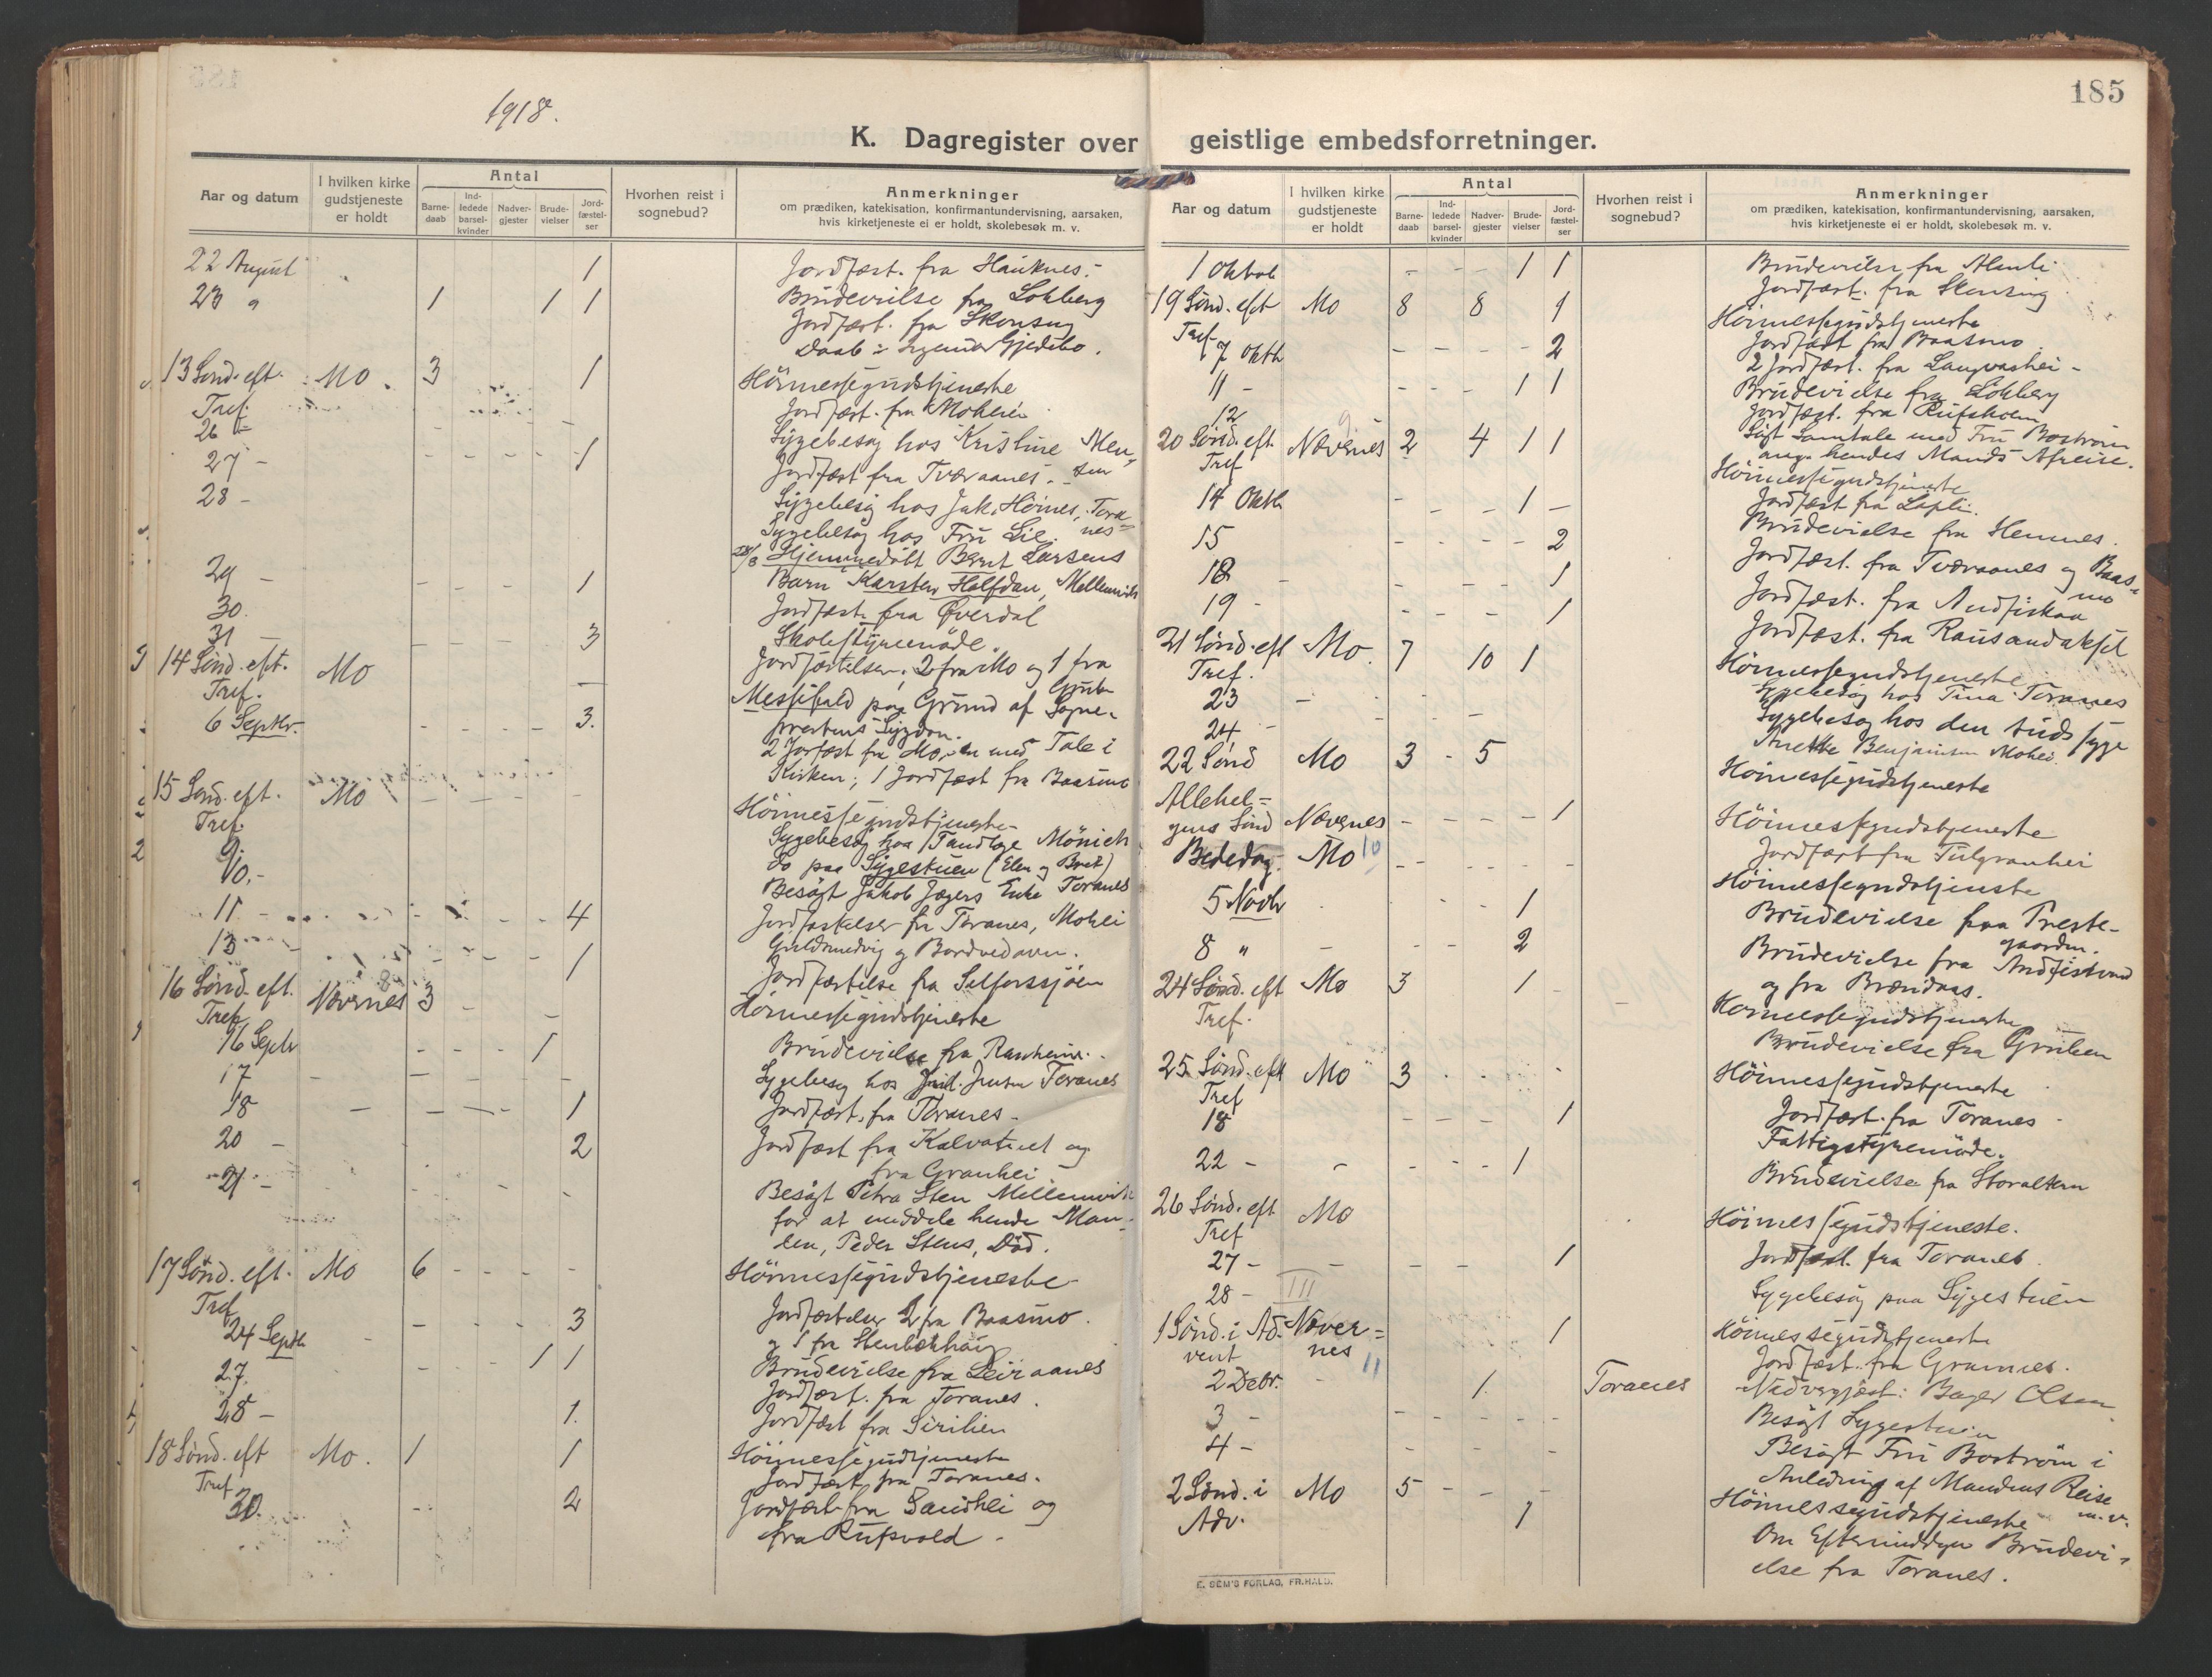 185
1918.
K. Dagregister over geistlige embedsforretninger.
Aar og datum
I hvilken kirke gudstjeneste er holdt
Antal
Barnedaab
Indledede barselkvinder
Nadvergjester
Brudevielser
Jordfæstelser
Hvorhen reist i sognebud?
Anmerkninger
om prædiken, katekisation, konfirmantundervisning, aarsaken,
hvis kirketjeneste ei er holdt, skolebesøk m. v.
22 August 1 Jordfæst. fra Hauknes.
23 " 1 1 1 Brudevielse fra Lokberg
Jordfæst. fra Skonseng
Daab i
13 Sønd. eft. Mo. 3 1 Höimessegudstjeneste
Tref. Jordfæst. fra Mohei
26 - Sygebesøg hos Kristine Men-
27 - 1 Jordfæst fra Tværaanes. sen
28 - Sygebesøg hos Jak. Höines, Tora-
Sygebesøg hos Fru Lie. nes
28/8 Hjemmedöbt Bernt Larsens
29 - 1 Barn Karsten Halfdan, Mellemvik
30. Jordfæst. fra Øverdal
31 - 3 Skolestyremöde.
14 Sønd. eft. Mo Jordfæstelser; 2 fra Mo og 1 fra
Tref. Messefald paa Grund af Sogne-
6 Septbr. 3. prestens Sygdom.
2 Jorfæst fra Mo, en med Tale i
Kirken; 1 Jordfæst fra Baasmo
15 Sønd. eft. Mo Höimessegudstjeneste
Tref. Sygebesøg hos Tandlæge Mönich
9. do paa Sygestuen (Elen og Beret)
10. - Besøgt Jakob Jægers Enke Toranes
11 - 4 Jordfæstelser fra Toranes, Mohei
13 - 1 Guldsmedvig og Bordvedaven.
16 Sønd. eft. Nævernes 8 3 Jordfæstelse fra Selforssjöen
Tref. Höimessegudstjeneste
16 Septr 1 Brudevielse fra
17 Sygebesøg hos Jensen Toranes
18 1 Jordfæst. fra Toranes -
20 - 2 Jordfæst fra Kalvatnet og
fra Granhei
21 - Besøgt Petra Sten Mellemvik
for at meddele hende Man-
den, Peder Stens, Död.
17 Sønd. eft. Mo 6 Höimessegudstjeneste
Tref.
24 Septbr 3 Jordfæstelser 2 fra Baasmo
og 1 fra Stenbekhaug
27. 1 1 Brudevielse fra Leiraanes
Jordfæst. fra Toranes.
28 - 1. Jordfæst fra Sirilien
18 Sønd. eft Mo. 1 1 Höimessegudstjeneste
Tref Jordfæst fra Toranes.
30. 2 Jordfæst fra Sandhei og
fra Rufsvold -
Aar og datum
I hvilken kirke gudstjeneste er holdt
Antal
Barnedaab
Indledede barselkvinder
Nadvergjester
Brudevielser
Jordfæstelser
Hvorhen reist i sognebud?
Anmerkninger
om prædiken, katekisation, konfirmantundervisning, aarsaken,
hvis kirketjeneste ei er holdt, skolebesøk m. v.
1 Oktob 1 1 Brudevielse fra Alenli
Jordfæst. fra Skonseng
19 Sønd. eft Mo 8 8 1 Höimessegudstjeneste
Tref. Jordfæst fra Baasmo
7 Oktb 2 2 Jordfæst. fra Langvashei -
11 - 1 1 Brudevielse fra Lökberg
12 Jordfæst. fra Rufsholm
20 Sønd. eft Nævernes 9 2 4 1 1 Søgt Samtale med Fru Boström
Tref ang. hendes Mands Afreise.
Höimessegudstjeneste
14 Oktb 1 Jordfæst fra Laplie.
15 2 Brudevielse fra Hemnes.
18 - 1 Jordfæst. fra Tværaanes og Baas-
mo
19 - 1 Jordfæst. fra Andfiskaa
21 Sønd. eft Mo. 7 10 1 Jordfæst. fra Rausandaksel
Tref. Höimessegudstjeneste
23 - Sygebesøg hos Tina Toranes
24 - Sygebesøg hos den sindssyge
Anette Benjaminsen Mohei.
22 Sønd Mo 3 5 Höimessegudstjeneste
Allehel-
gens Sønd Nævernes 1 Höimessegudstjeneste
Jordfæst fra
Bededag. Mo 10 Höimessegudstjeneste
5 Novbr 1 Brudevielse paa Preste-
gaarden.
8 " 2 Brudevielse fra Andfiskvand
og fra Brændaas.
24 Sønd. eft Mo 3 1 Höimessegudstjeneste
Tref. Brudevielse fra Gruben
25 Sønd. eft Mo 3 Höimessegudstjeneste
Tref
18 1 Jordfæst. fra Toranes -
Fattigstyremöde.
22 - 1 Brudevielse fra Storaltern
26 Sønd. eft Mo Höimessegudstjeneste.
Tref
27 - 1 Jordfæst. fra Toranes.
28 - III Sygebesøg paa Sygestuen
1 Sønd. i Ad- Nævernes 1 Höimessegudstjeneste
vent 11 Jordfæst. fra Grannes.
2 Debr. 1. Toranes Nadvergjæst: Bager Olsen
3 - Besøgt Sygestuen
4 - Besøgt Fru Boström i
Anledning af Mandens Reise
m. v.
2 Sønd. i Mo 5 Höimessegudstjeneste
Adv. 1 Om Eftermiddagen Brudevi-
else fra Toranes.
E. SEM'S FORLAG, FR.HALD.